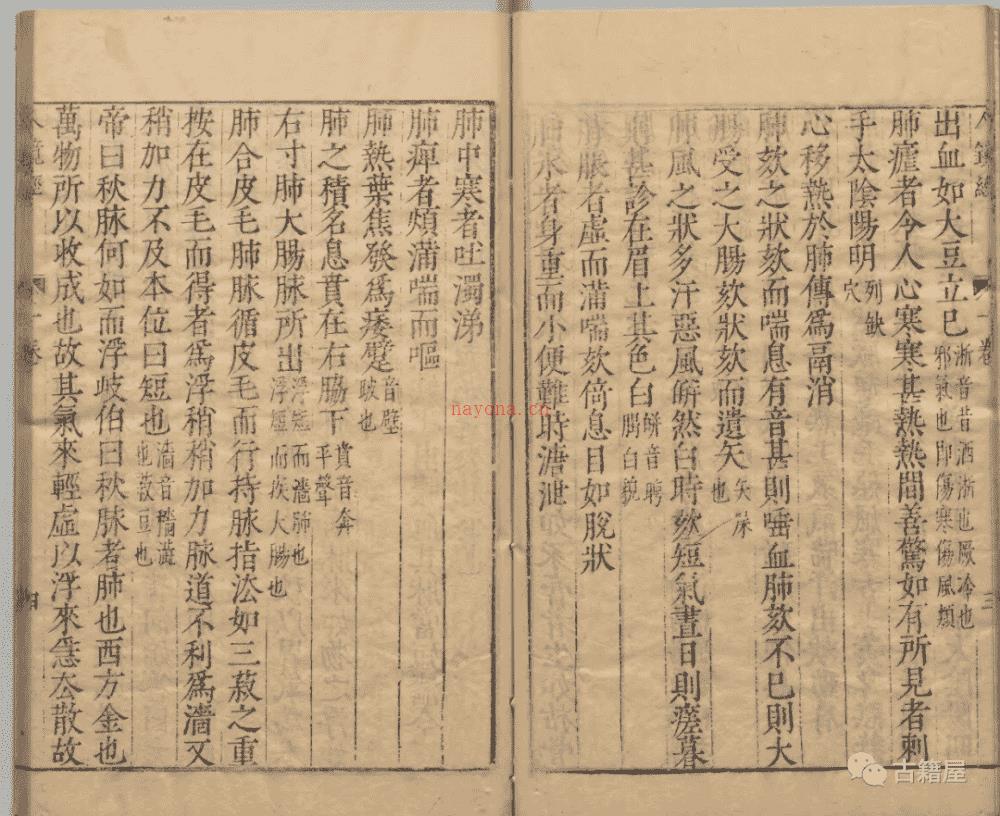 出血如大豆立巳淅音昔洒淅也厥冷也邪氣也即傷寒傷風類
肺瘧者令人心寒寒甚熱熱間善驚如有所見者刺
手太陰陽明列缺穴
心移熱於肺傳爲鬲消
肺欬之狀欬而喘息有音甚則唾血肺欬不巳則大
腸受之大腸欬狀欬而遺矢矢屎也
肺風之狀多汗惡風皏然白時欬短氣晝日則瘥暮
則甚診在眉上其色白皏音聘䐈白貌
肺脹者虛而滿喘欬倚息目如脫狀
肺水者身重而小便難時溏泄
肺中寒者吐濁涕
肺痺者煩滿喘而嘔
肺熱葉焦發爲痿躄音壁跛也
肺之積名息賁在右脇下賁音奔平聲
右寸肺大腸脉所出浮短而濇肺也浮短而疾大腸也
肺合皮毛肺脉循皮毛而行持脉指法如三菽之重
按在皮毛而得者爲浮稍稍加力脉道不利爲濇又
稍加力不及本位曰短也濇音穡澁也菽豆也
帝曰秋脉何如而浮岐伯曰秋脉者肺也西方金也
萬物所以收成也故其氣來輕虛以浮來急去散故
nayona.cn
古籍屋